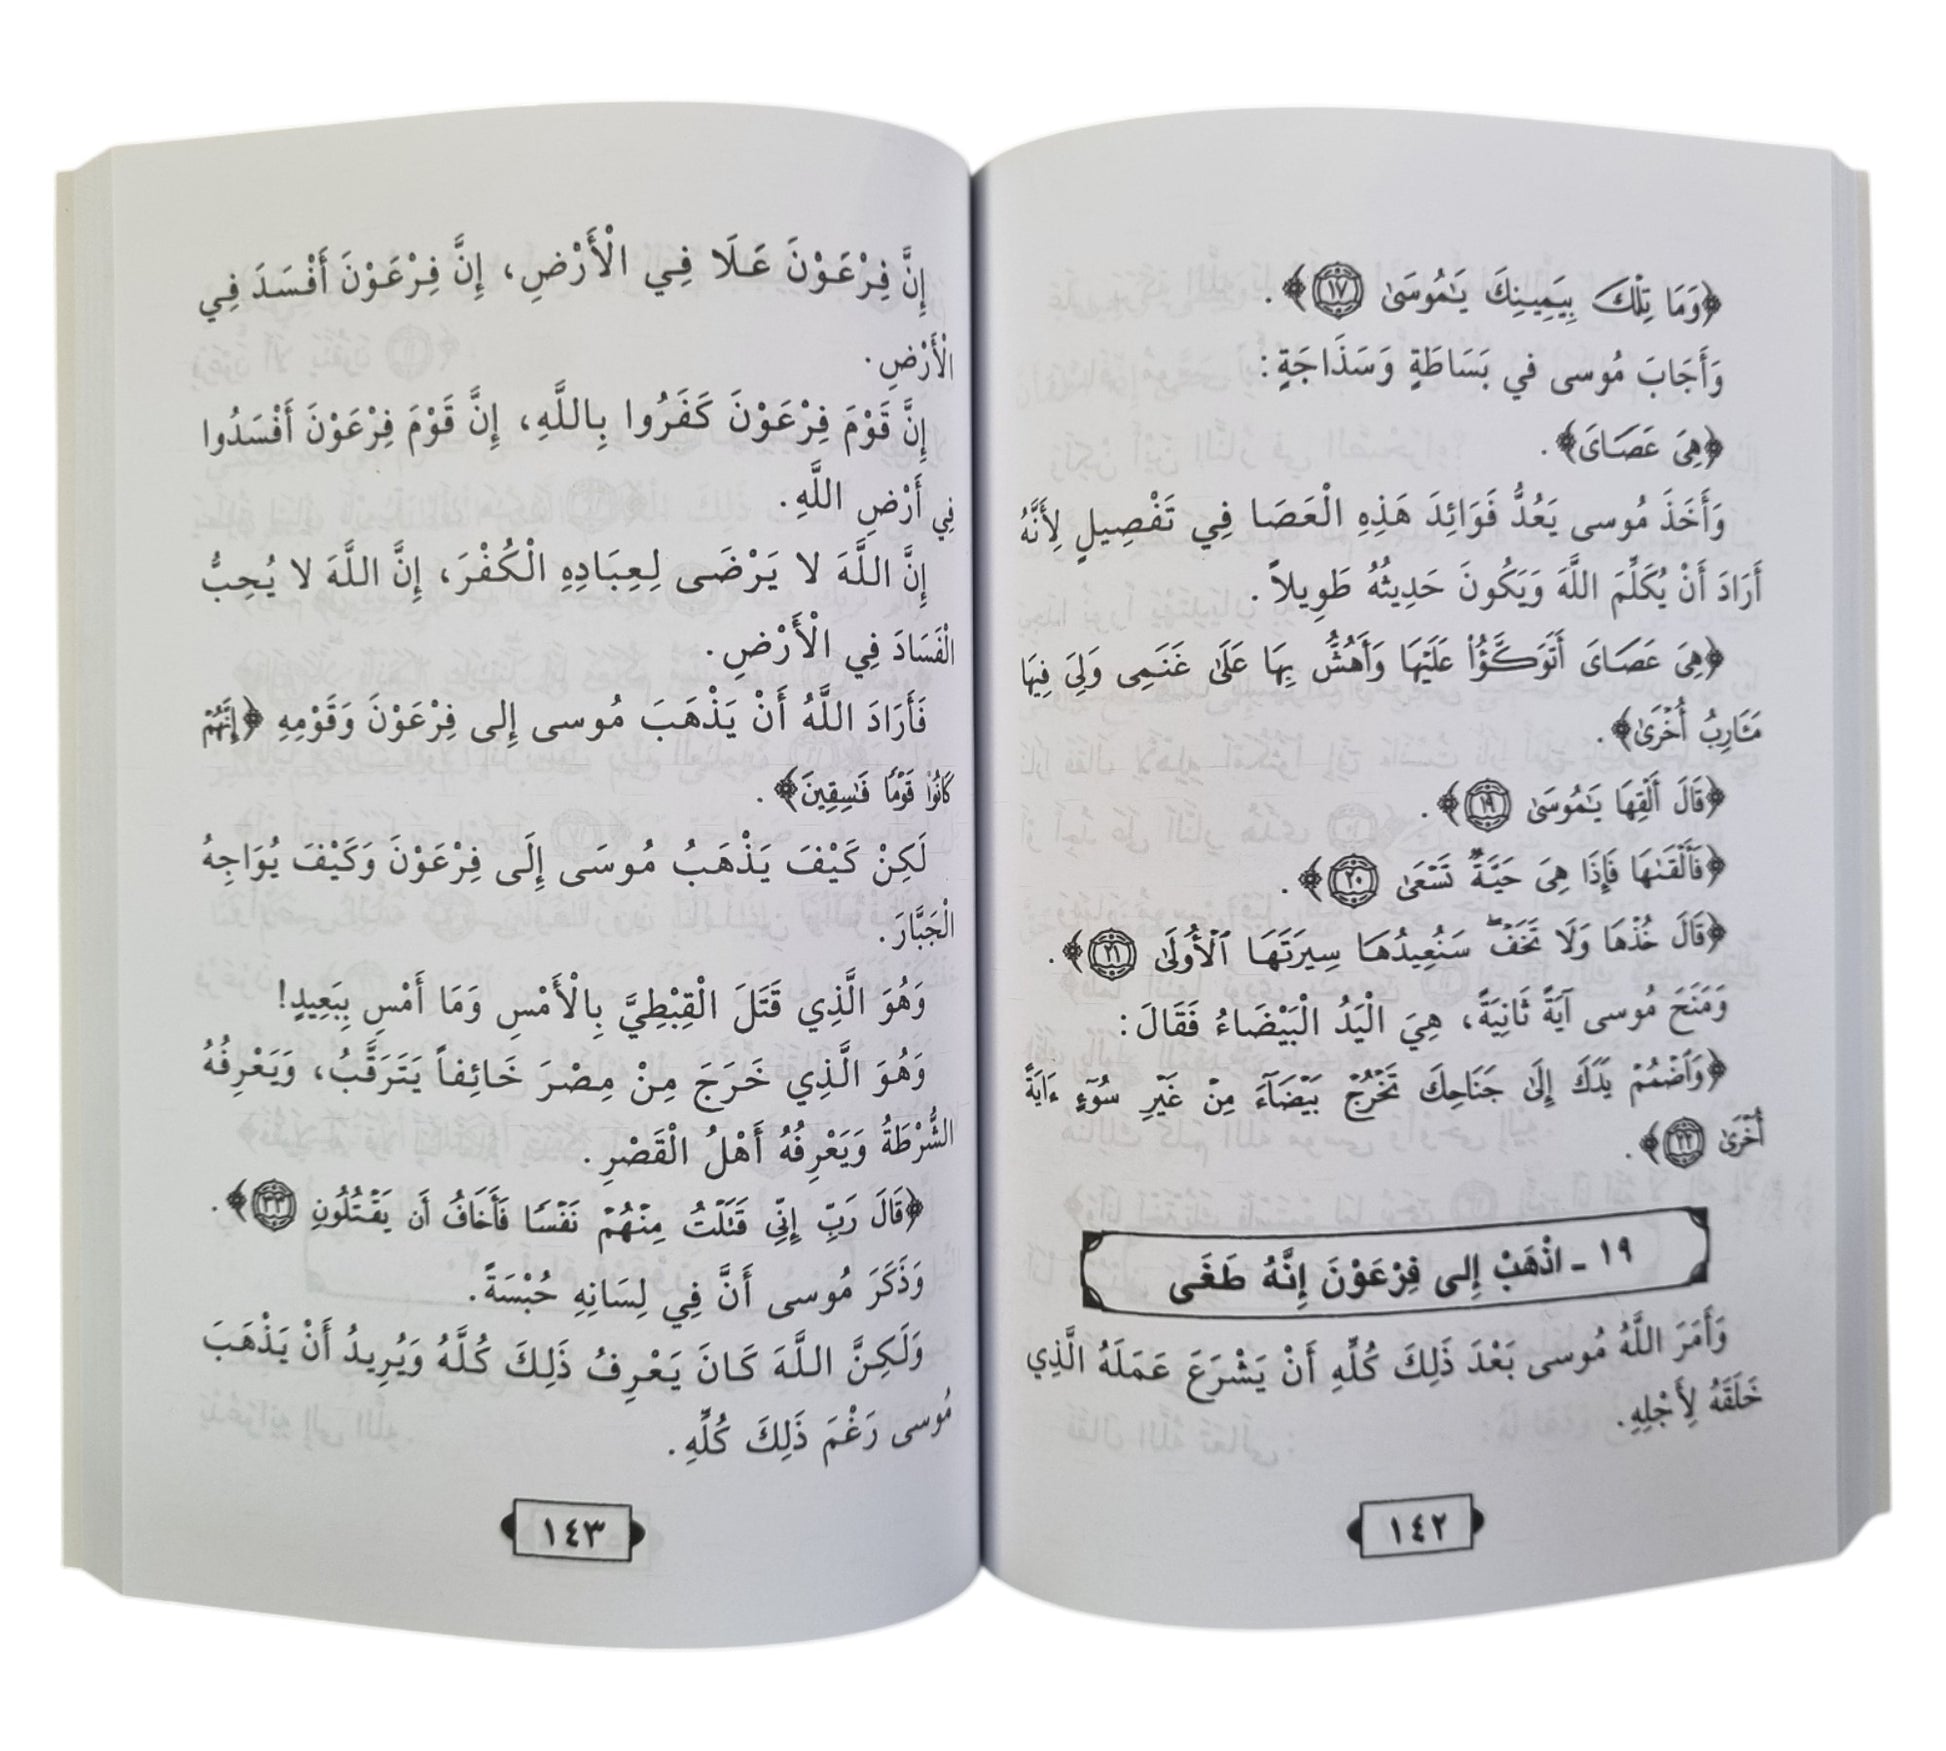 ﴿وَمَا تِلْكَ بِيَمِينِكَ يَـٰمُوسَىٰ ١٧﴾.
وَأَجَابَ مُوسى في بَسَاطَةٍ وَسَذَاجَةٍ:
﴿هِىَ عَصَاىَ﴾.
وَأَخَذَ مُوسى يَعُدُّ فَوَائِدَ هَذِهِ الْعَصَا فِي تَفْصِيلٍ لِأَنَّهُ
أَرَادَ أَنْ يُكَلِّمَ اللَّهَ وَيَكُونَ حَدِيثُهُ طَوِيلاً.
﴿هِىَ عَصَاىَ أَتَوَكَّؤُا۟ عَلَيْهَا وَأَهُشُّ بِهَا عَلَىٰ غَنَمِى وَلِىَ فِيهَا
مَـَٔارِبُ أُخْرَىٰ﴾.
﴿قَالَ أَلْقِهَا يَـٰمُوسَىٰ ١٩﴾.
﴿فَأَلْقَىٰهَا فَإِذَا هِىَ حَيَّةٌ تَسْعَىٰ ٢٠﴾.
﴿قَالَ خُذْهَا وَلَا تَخَفْ ۖ سَنُعِيدُهَا سِيرَتَهَا ٱلْأُولَىٰ ٢١﴾.
وَمَنَحَ مُوسى آيَةً ثَانِيَةً، هِيَ الْيَدُ الْبَيْضَاءُ فَقَالَ:
﴿وَٱضْمُمْ يَدَكَ إِلَىٰ جَنَاحِكَ تَخْرُجْ بَيْضَآءَ مِنْ غَيْرِ سُوٓءٍ ءَايَةً
أُخْرَىٰ ٢٢﴾.
١٩ - اذْهَبْ إِلى فِرْعَوْنَ إِنَّهُ طَغَى
وَأَمَرَ اللَّهُ مُوسى بَعْدَ ذَلِكَ كُلِّهِ أَنْ يَشْرَعَ عَمَلَهُ الَّذِي
خَلَقَهُ لِأَجْلِهِ.
١٤٢
إِنَّ فِرْعَوْنَ عَلَا فِي الْأَرْضِ، إِنَّ فِرْعَوْنَ أَفْسَدَ فِي
الْأَرْضِ.
إِنَّ قَوْمَ فِرْعَوْنَ كَفَرُوا بِاللَّهِ، إِنَّ قَوْمَ فِرْعَوْنَ أَفْسَدُوا
فِي أَرْضِ اللَّهِ.
إِنَّ اللَّهَ لا يَرْضَى لِعِبَادِهِ الْكُفْرَ، إِنَّ اللَّهَ لا يُحِبُّ
الْفَسَادَ فِي الْأَرْضِ.
فَأَرَادَ اللَّهُ أَنْ يَذْهَبَ مُوسى إِلى فِرْعَوْنَ وَقَوْمِهِ ﴿إِنَّهُمْ
كَانُوا۟ قَوْمًا فَـٰسِقِينَ﴾.
لَكِنْ كَيْفَ يَذْهَبُ مُوسَى إِلَى فِرْعَوْنَ وَكَيْفَ يُوَاجِهُ
الْجَبَّارَ.
وَهُوَ الَّذِي قَتَلَ الْقِبْطِيَّ بِالْأَمْسِ وَمَا أَمْسِ بِبَعِيدٍ!
وَهُوَ الَّذِي خَرَجَ مِنْ مِصْرَ خَائِفاً يَتَرَقَّبُ، وَيَعْرِفُهُ
الشُّرْطَةُ وَيَعْرِفُهُ أَهْلُ الْقَصْرِ.
﴿قَالَ رَبِّ إِنِّى قَتَلْتُ مِنْهُمْ نَفْسًا فَأَخَافُ أَن يَقْتُلُونِ ٣٣﴾.
وَذَكَرَ مُوسى أَنَّ فِي لِسَانِهِ حُبْسَةً.
وَلَكِنَّ اللَّهَ كَانَ يَعْرِفُ ذَلِكَ كُلَّهُ وَيُرِيدُ أَنْ يَذْهَبَ
مُوسى رَغْمَ ذَلِكَ كُلِّهِ.
١٤٣